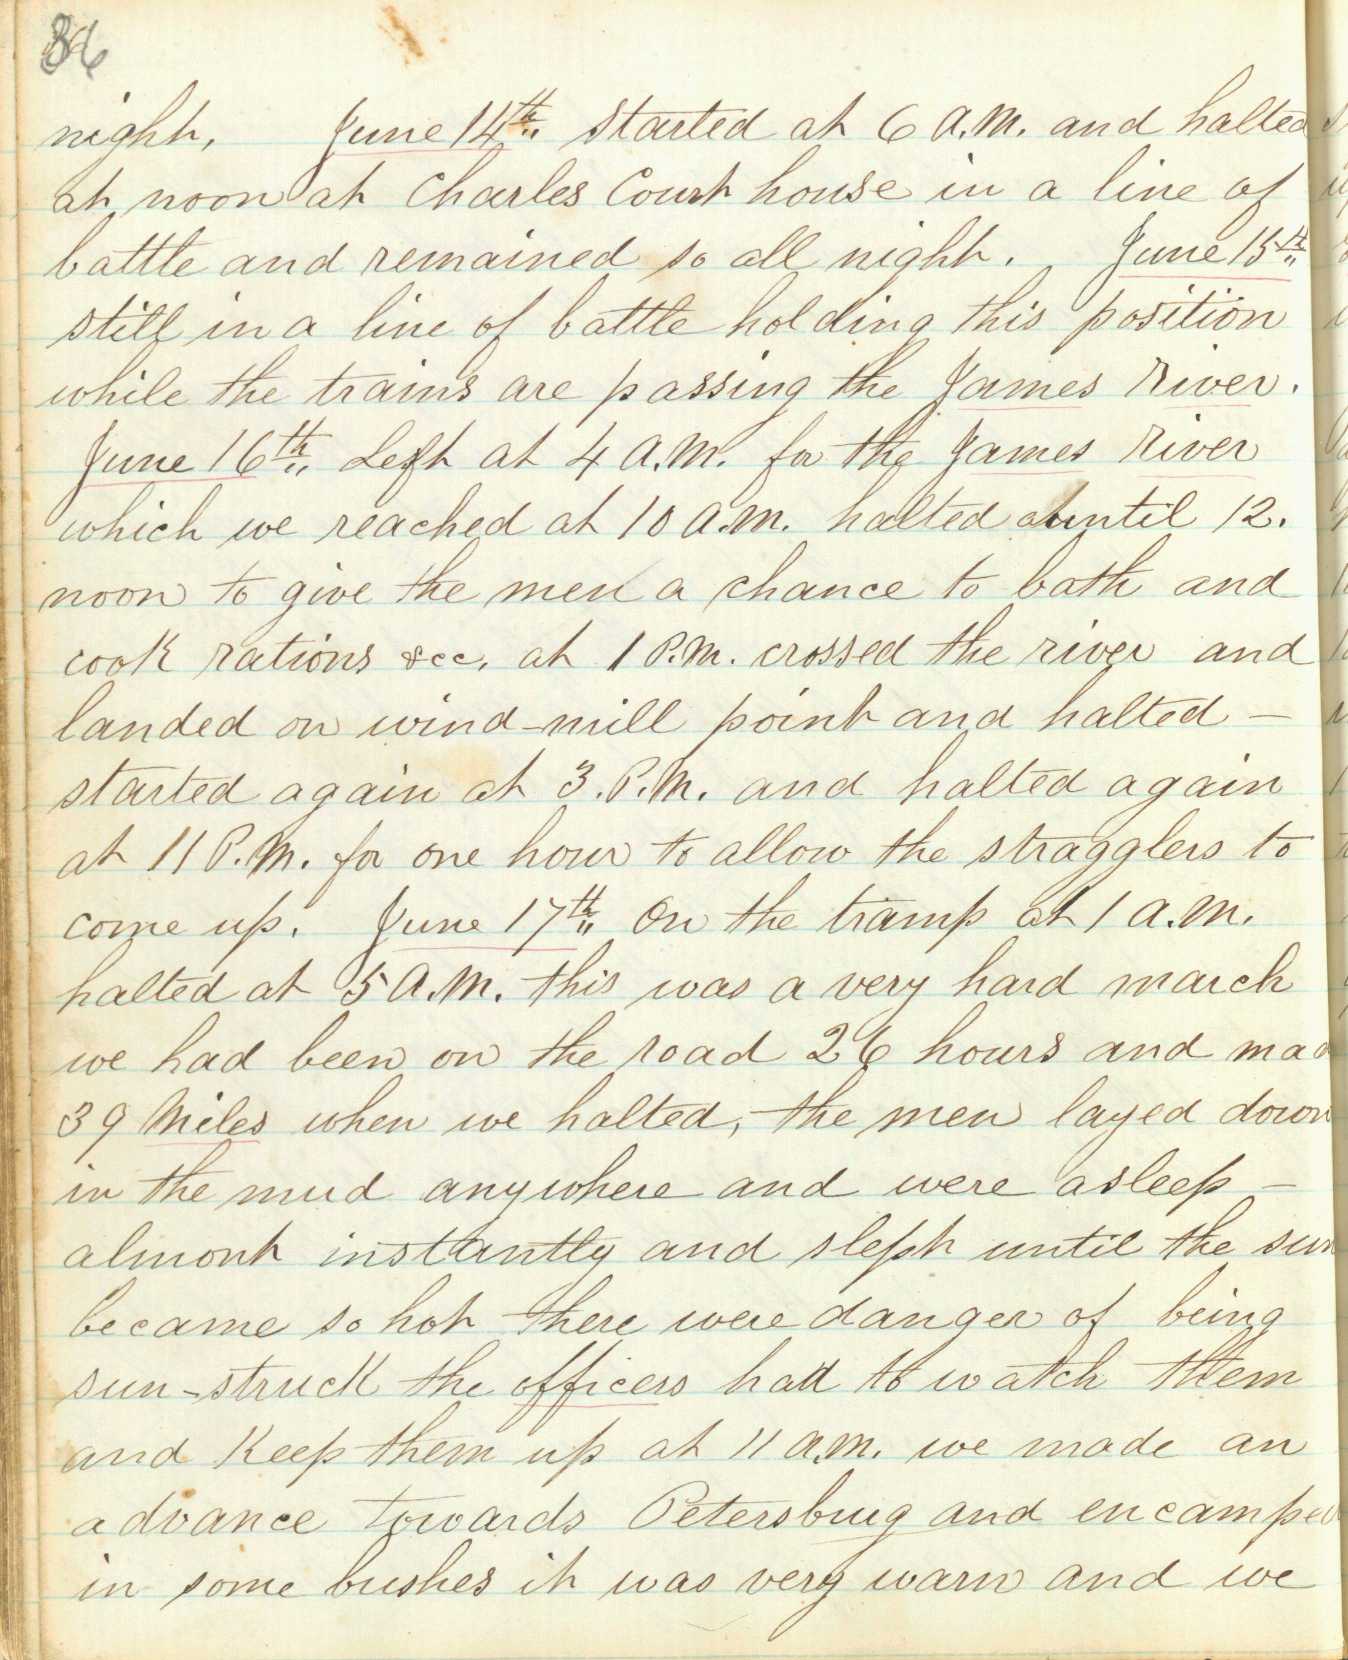 36
night, June 14th started at 6 A.M. and halted
at noon at Charles Court house in a line of
battle and remained so all night. June 15th
still in a line of battle holding this position
while the trains are passing the James River.
June 16th Left at 4 A.M. for the James River
which we reached at 10 A.M. halted until 12.
noon to give the men a chance to bath and
cook rations &cc. at 1 P.M. crossed the river and
landed on wind-mill point and halted –
started again at 3. P.M. and halted again
at 11 P.M. for one hour to allow the stragglers to
come up. June 17th On the tramp at 1 A.M.
halted at 5 A.M. this was a very hard march
we had been on the road 26 hours and mad
39 Miles when we halted, the men layed down
in the mud anywhere and were asleep –
almost instantly and slept until the sun
became so hot there were danger of being
sun-struck the officers had to watch them
and Keep them up at 11 a.m. we made an
advance towards Petersburg and encamped
in some bushes it was very warm and we